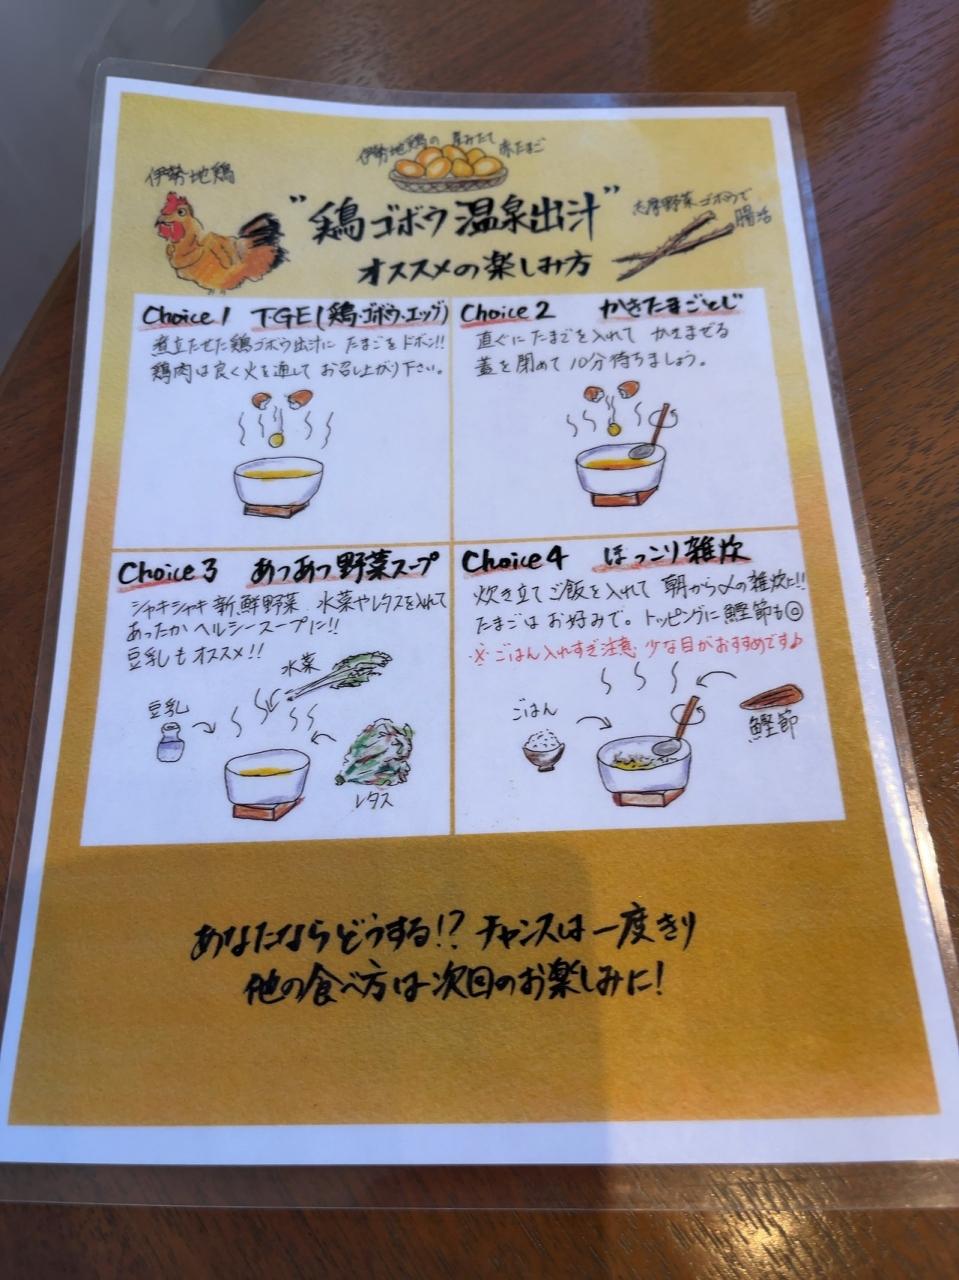 伊勢地鶏の産みたて赤たまご
伊勢地鶏
志摩野菜ゴボウで
腸活
"鶏ゴボウ温泉出汁"
オススメの楽しみ方
Choice1 TGE(鶏・ゴボウ・エッグ)
煮立たせた鶏ゴボウ出汁に たまごをドボン!!
鶏肉は良く火を通して お召し上がり下さい。
Choice2 かきたまごとじ
直ぐに たまごを入れて かきまぜる
蓋を閉めて 10分待ちましょう。
Choice3 あつあつ野菜スープ
シャキシャキ新鮮野菜 水菜やレタスを入れて
あったか ヘルシースープに!!
豆乳もオススメ!!
水菜
豆乳
レタス
Choice4 ほっこり雑炊
炊き立てご飯を入れて 朝から〆の雑炊に!!
たまごは お好みで。トッピングに 鰹節も◎
※ごはん入れすぎ注意 少な目がおすすめです♪
ごはん
鰹節
あなたならどうする!? チャンスは一度きり
他の食べ方は次回のお楽しみに!